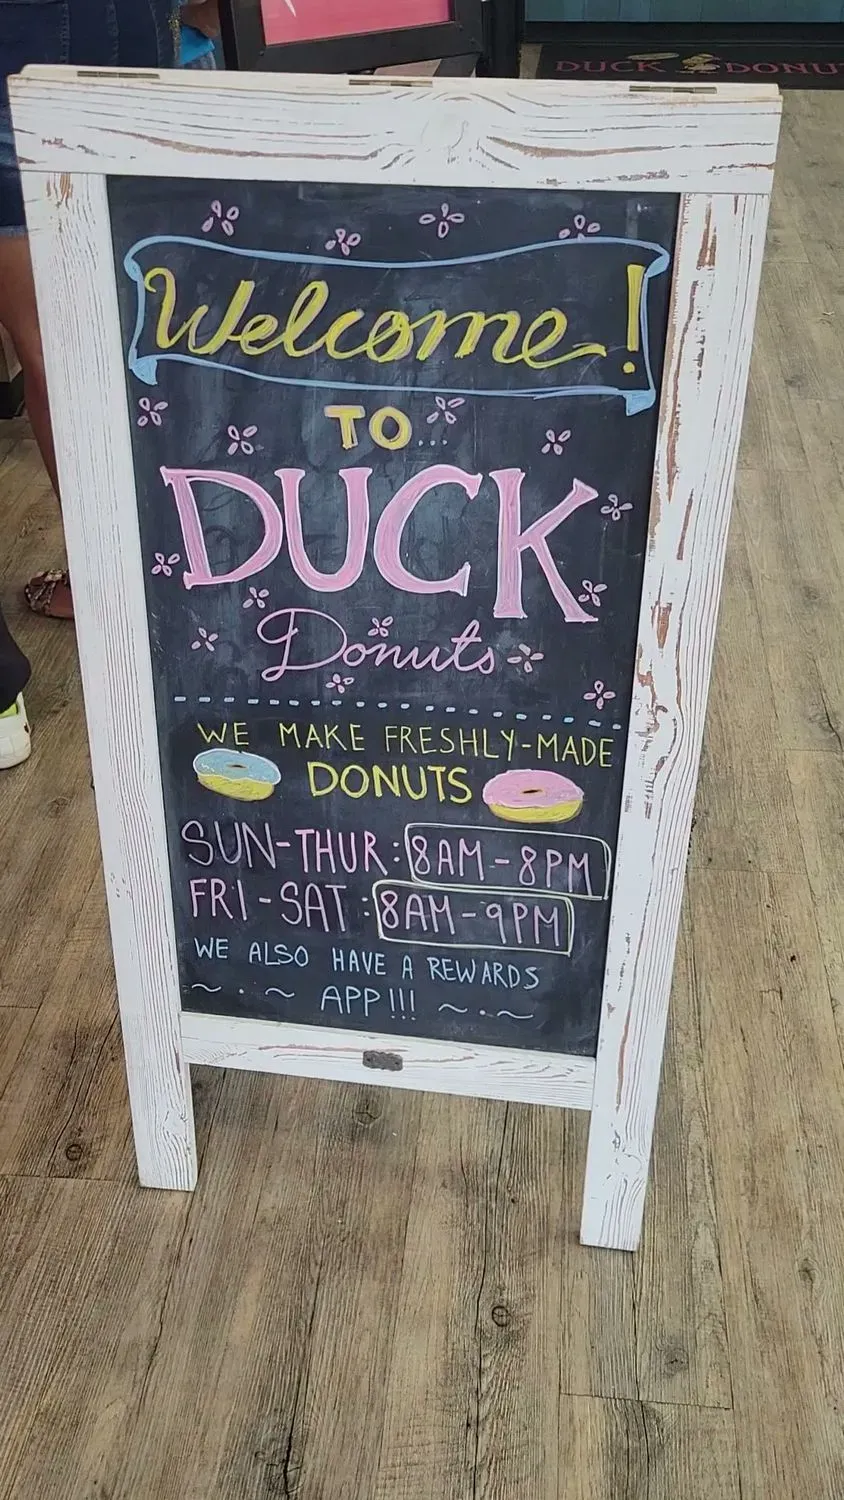 DUCK DONUT
Welcome!
TO...
DUCK
Donuts
WE MAKE FRESHLY-MADE
DONUTS
SUN-THUR: 8AM-8PM
FRI-SAT: 8AM-9PM
WE ALSO HAVE A REWARDS
~ · ~ APP!!! ~ · ~